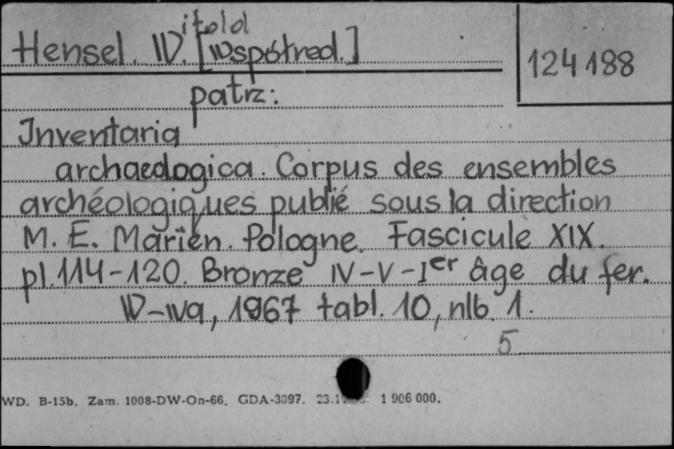 Hensel. W.itold [współred.]
124188
patrz:
Inventaria
archaeologica. Corpus des ensembles
archéologiques publié sous la direction
M. E. Mariën. Pologne. Fascicule XIX.
pl. 114-120. Bronze IV-V-Ier âge du fer.
W-wa, 1967 tabl. 10, nlb. 1.
5
WD. B-15b. Zam. 1008-DW-On-66. GDA-3097. 1 906 000.